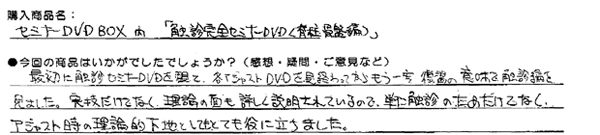 購入商品名:
セミナーDVD BOX 内 「触診完全セミナーDVD(脊柱骨盤編)」
●今回の商品はいかがでしたでしょうか?(感想・疑問・ご意見など)
最初に触診セミナーDVDを観て、各アジャストDVDを見終わってからもう一度 復習の意味で触診編を
見ました。実技だけでなく、理論の面も詳しく説明されているので、単に触診のためだけでなく、
アジャスト時の理論的下地としてとても役に立ちました。